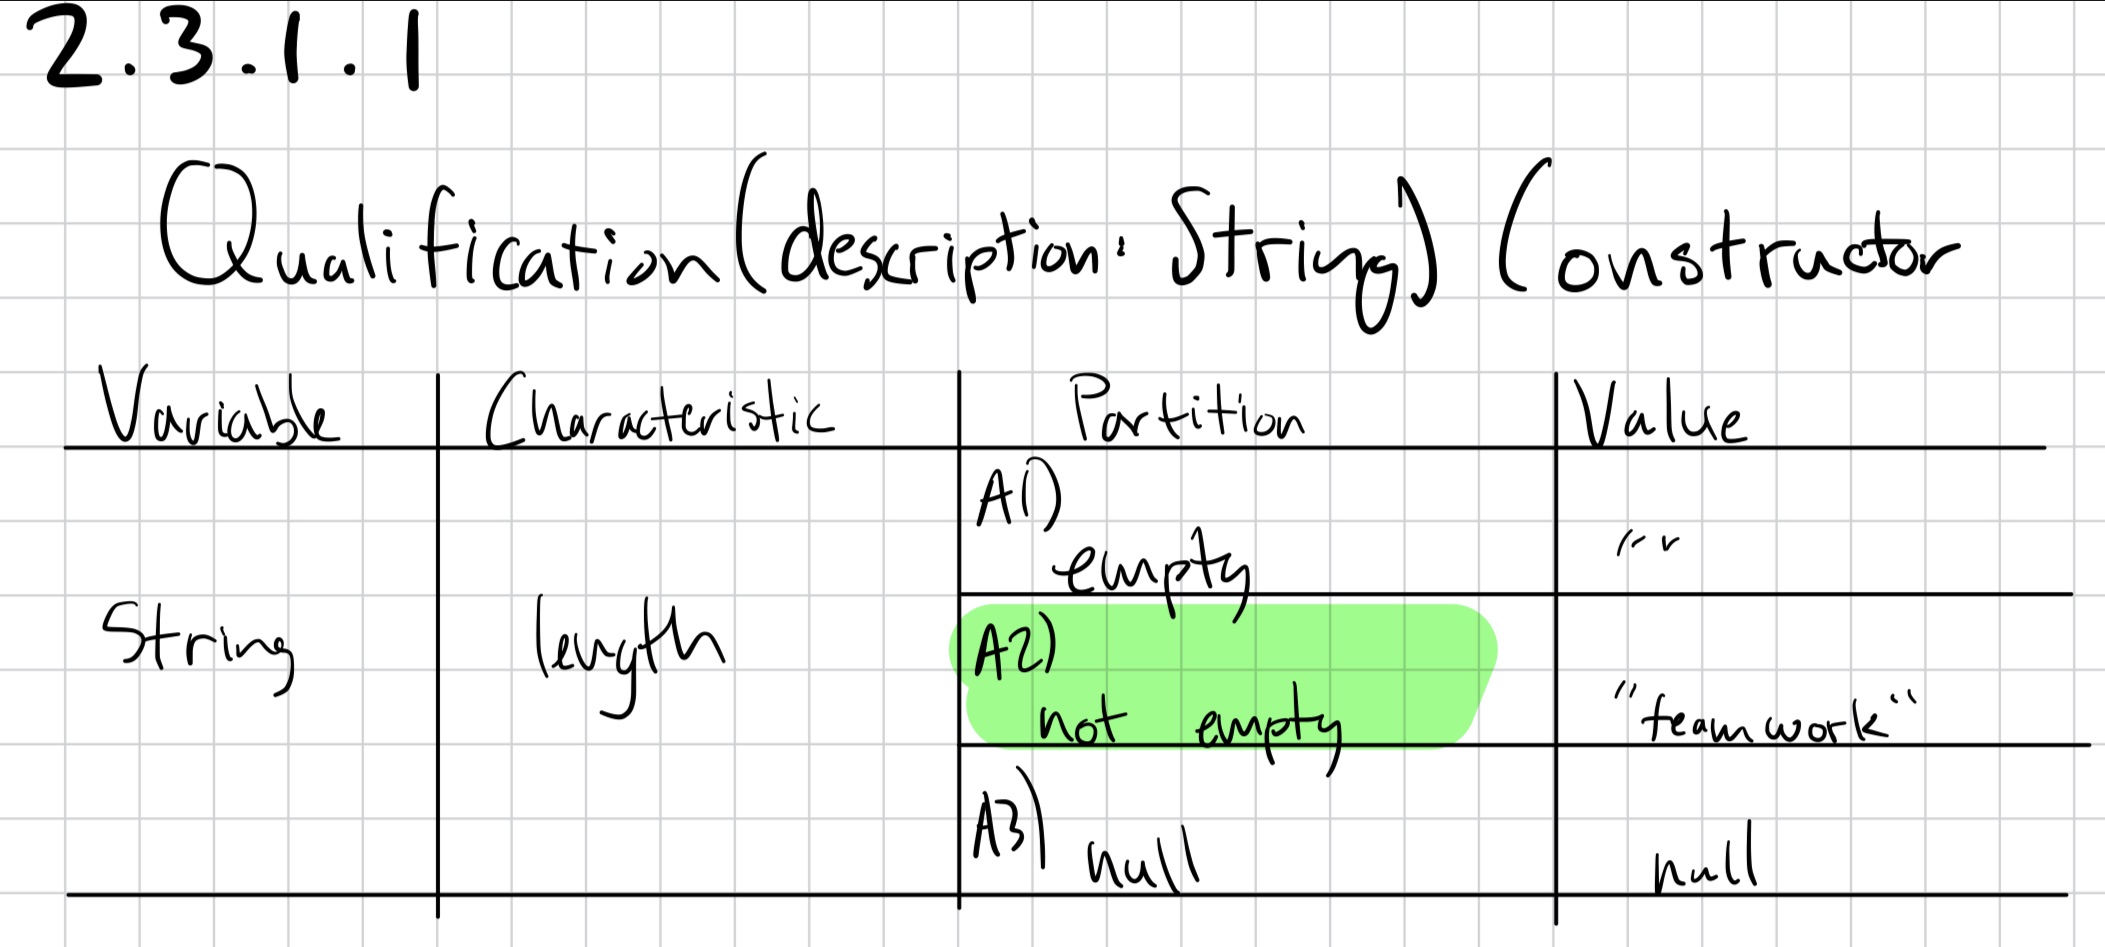 2.3.1.1
Qualification(description: String) Constructor
Variable Characteristic Partition Value
A1)
empty ""
String length A2)
not empty "teamwork"
A3) null null